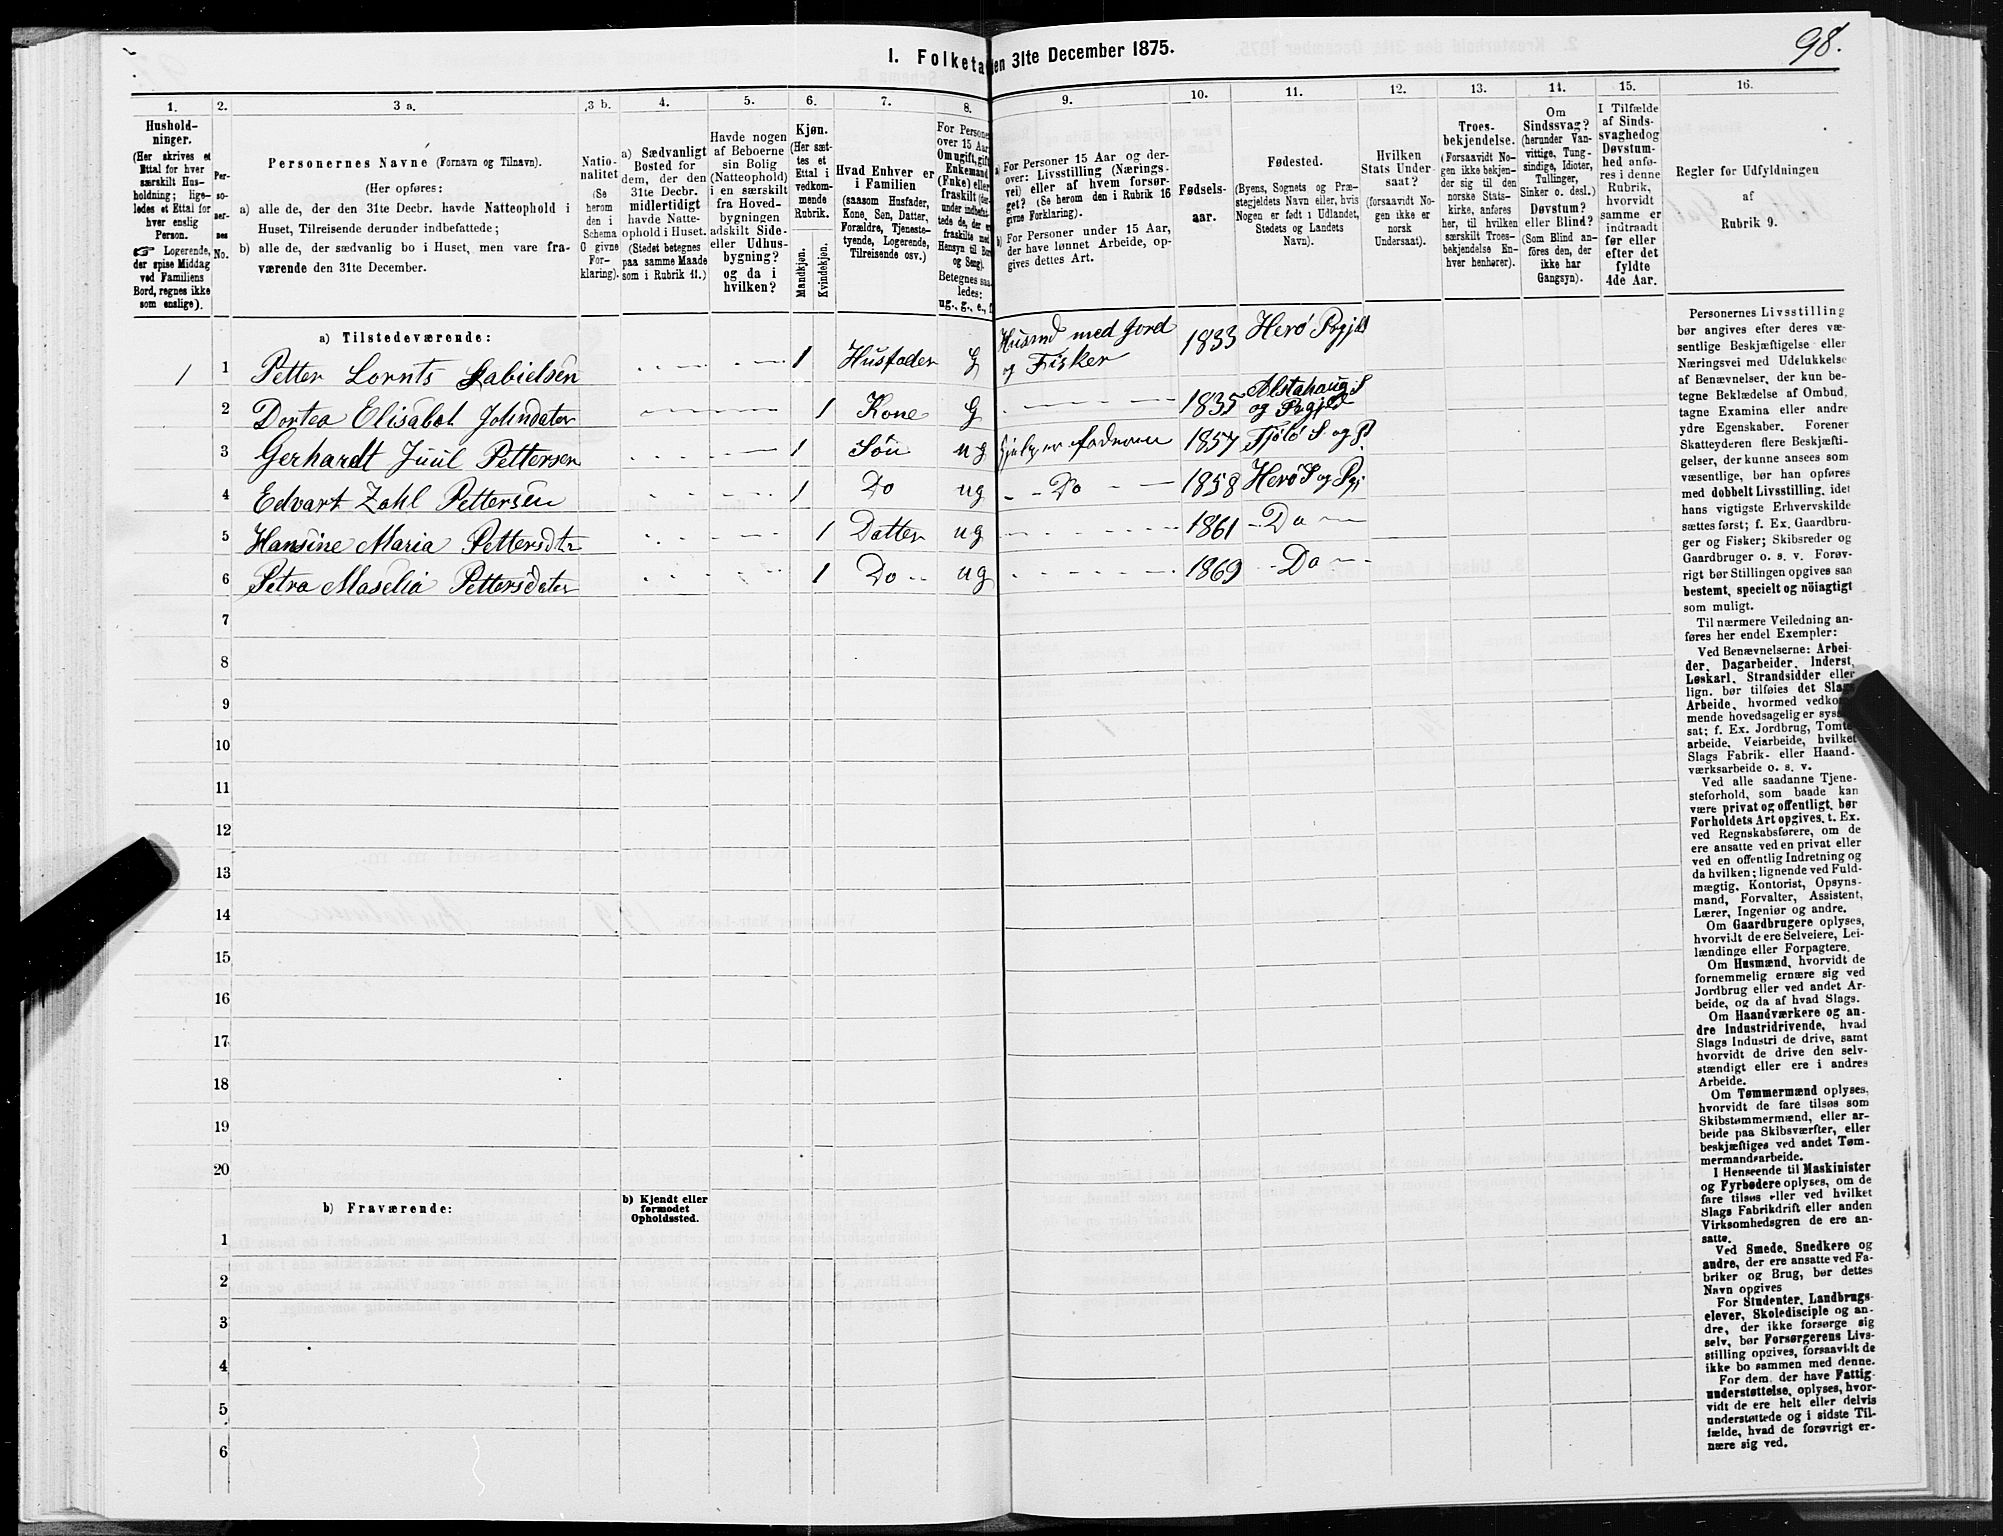 98.
I. Folketa en 31te December 1875.
1. 2. 3 a. 3 b. 4. 5. 6. 7. 8. 9. 10. 11. 12. 13. 14. 15. 16.
Hushold-
ninger.
(Her skrives et
Ettal for hver
særskilt Hus-
holdning; lige-
ledes et Ettal for
hver enslig
Person.
☞ Logerende,
der spise Middag
ved Familiens
Bord, regnes ikke
som enslige).
Per-
so-
ner-
nes
No.
Personernes Navne (Fornavn og Tilnavn).
(Her opføres:
a) alle de, der den 31te Decbr. havde Natteophold i
Huset, Tilreisende derunder indbefattede;
b) alle de, der sædvanlig bo i Huset, men vare fra-
værende den 31te December.
Natio-
nalitet
(Se
herom
den i
Schema
O givne
For-
klaring).
a) Sædvanligt
Bosted for
dem, der den
31te Decbr.
midlertidigt
havde Natte-
ophold i Huset.
(Stedet betegnes
paa samme Maade
som i Rubrik 11.)
Havde nogen
af Beboerne
sin Bolig
(Natteophold)
i en særskilt
fra Hoved-
bygningen
adskilt Side-
eller Udhus-
bygning?
og da i
hvilken?
Kjøn.
(Her sæt-
tes et
Ettal i
vedkom-
mende
Rubrik.
Mandkjøn.
Kvindekjøn.
Hvad Enhver er
i Familien
(saasom Husfader,
Kone, Søn, Datter,
Forældre, Tjeneste-
tyende, Logerende,
Tilreisende osv.)
For Persone
over 15 Aar
Om ugift, gift
Enkemand
(Enke) eller
fraskilt (der-
under indbefat-
tede de, der e
fraskilte med
Hensyn til Bor
og Seng).
Betegnes saa-
ledes:
ug., g., e., f
a) For Personer 15 Aar og der-
over: Livsstilling (Nærings-
vei) eller af hvem forsør-
get? (Se herom den i Rubrik 16
givne Forklaring).
b) For Personer under 15 Aar,
der have lønnet Arbeide, op-
gives dettes Art.
Fødsels-
aar.
Fødested.
(Byens, Sognets og Præ-
stegjeldets Navn eller, hvis
Nogen er født i Udlandet,
Stedets og Landets
Navn).
Hvilken
Stats Under-
saat?
(forsaavidt No-
gen ikke er
norsk
Undersaat).
Troes-
bekjendelse.
(Forsaavidt No-
gen ikke bekjen-
der sig til den
norske Stats-
kirke, anføres
her, til hvilken
særskilt Troes-
bekjendelse En-
hver henhører).
Om
Sindssvag?
(herunder Van-
vittige, Tung-
sindige, Idioter,
Tullinger,
Sinker o. desl.)
Døvstum?
eller Blind?
(Som Blind an-
føres den, der
ikke har
Gangsyn).
I Tilfælde
af Sinds-
svaghed og
Døvstum-
hed anfø-
res i denne
Rubrik,
hvorvidt
samme er
indtraadt
før eller
efter det
fyldte
4de Aar.
Regler for Udfyldningen
af
Rubrik 9.
a) Tilstedeværende:
1 1 Petter Lornts Gabielsen 1 Husfader G Husmd med Jord og Fisker 1833 Herö Pgjld
2 Dortea Elisabet Johndater 1 Kone G 1835 Alstahaug S og Pgjeld
3 Gerhardt Juul Pettersen 1 Sön ug hjelper faderen 1857 Tjötö S og P
4 Edvart Zahl Pettersen 1 Do ug Do 1858 Herö S og Pgj
5 Hansine Maria Pettersdtr 1 Datter ug 1861 Do
6 Petra Maselia Pettersdater 1 Do ug 1869 Do
7
8
9
10
11
12
13
14
15
16
17
18
19
20
b) Fraværende:
b) Kjendt eller
formodet
Opholdssted.
1
2
3
4
5
6
Personernes Livsstilling
bør angives efter deres væ-
sentlige Beskjæftigelse eller
Næringsvei med Udelukkelse
af Benævnelser, der kun be-
tegne Beklædelse af Ombud,
tagne Examina eller andre
ydre Egenskaber. Forener
Skatteyderen flere Beskjæfti-
gelser, der kunne ansees som
væsentlige, bør han opføres
med dobbelt Livsstilling, idet
hans vigtigste Erhvervskilde
sættes først; f. Ex. Gaardbru-
ger og Fisker; Skibsreder og
Gaardbruger o. s. v. Forøv-
rigt bør Stillingen opgives saa
bestemt, specielt og nöiagtigt
som muligt.
Til nærmere Veiledning an-
føres her endel Exempler:
Ved Benævnelserne: Arbei-
der, Dagarbeider, Inderst,
Løskarl, Strandsidder eller
lign. bør tilføies det Slags
Arbeide, hvormed vedkom-
mende hovedsagelig er syssel-
sat; f. Ex. Jordbrug, Tomte-
arbeide, Veiarbeide, hvilket
Slags Fabrik- eller Haand-
værksarbeide o. s. v.
Ved alle saadanne Tjene-
steforhold, som baade kan
være privat og offentligt, bør
Forholdets Art opgives, t. Ex.
ved Regnskabsførere, om de
ere ansatte ved en privat eller
ved en offentlig Indretning og
da hvilken; lignende ved Fuld-
mægtig, Kontorist, Opsyns-
mand, Forvalter, Assistent,
Lærer, Ingeniør og andre.
Om Gaardbrugere oplyses,
hvorvidt de ere Selveiere, Lei-
lændinge eller Forpagtere.
Om Husmænd, hvorvidt de
fornemmelig ernære sig ved
Jordbrug eller ved andet Ar-
beide, og da af hvad Slags.
Om Haandværkere og an-
dre Industridrivende, hvad
Slags Industri de drive, samt
hvorvidt de drive den selv-
stændigt eller ere i andres
Arbeide.
Om Tømmermænd oplyses,
hvorvidt de fare tilsøs som
Skibstømmermænd, eller ar-
beide paa Skibsværfter, eller
beskjæftiges ved andet Tøm-
mermandsarbeide.
I Henseende til Maskinister
og Fyrbødere oplyses, om de
fare tilsøs eller ved hvilket
Slags Fabrikdrift eller anden
Virksomhedsgren de ere an-
satte.
Ved Smede, Snedkere og
andre, der ere ansatte ved Fa-
briker og Brug, bør dettes
Navn opgives
For Studenter, Landbrugs-
elever, Skoledisciple og an-
dre, der ikke forsørge sig
selv, bør Forsørgerens Livs-
stilling opgives, forsaavidt de
ikke bo sammen med denne.
For dem, der have Fattig-
understøttelse, oplyses, hvor-
vidt de ere helt eller delvis
understøttede og i sidste Til-
fælde, hvad de forøvrigt er-
nære sig ved.